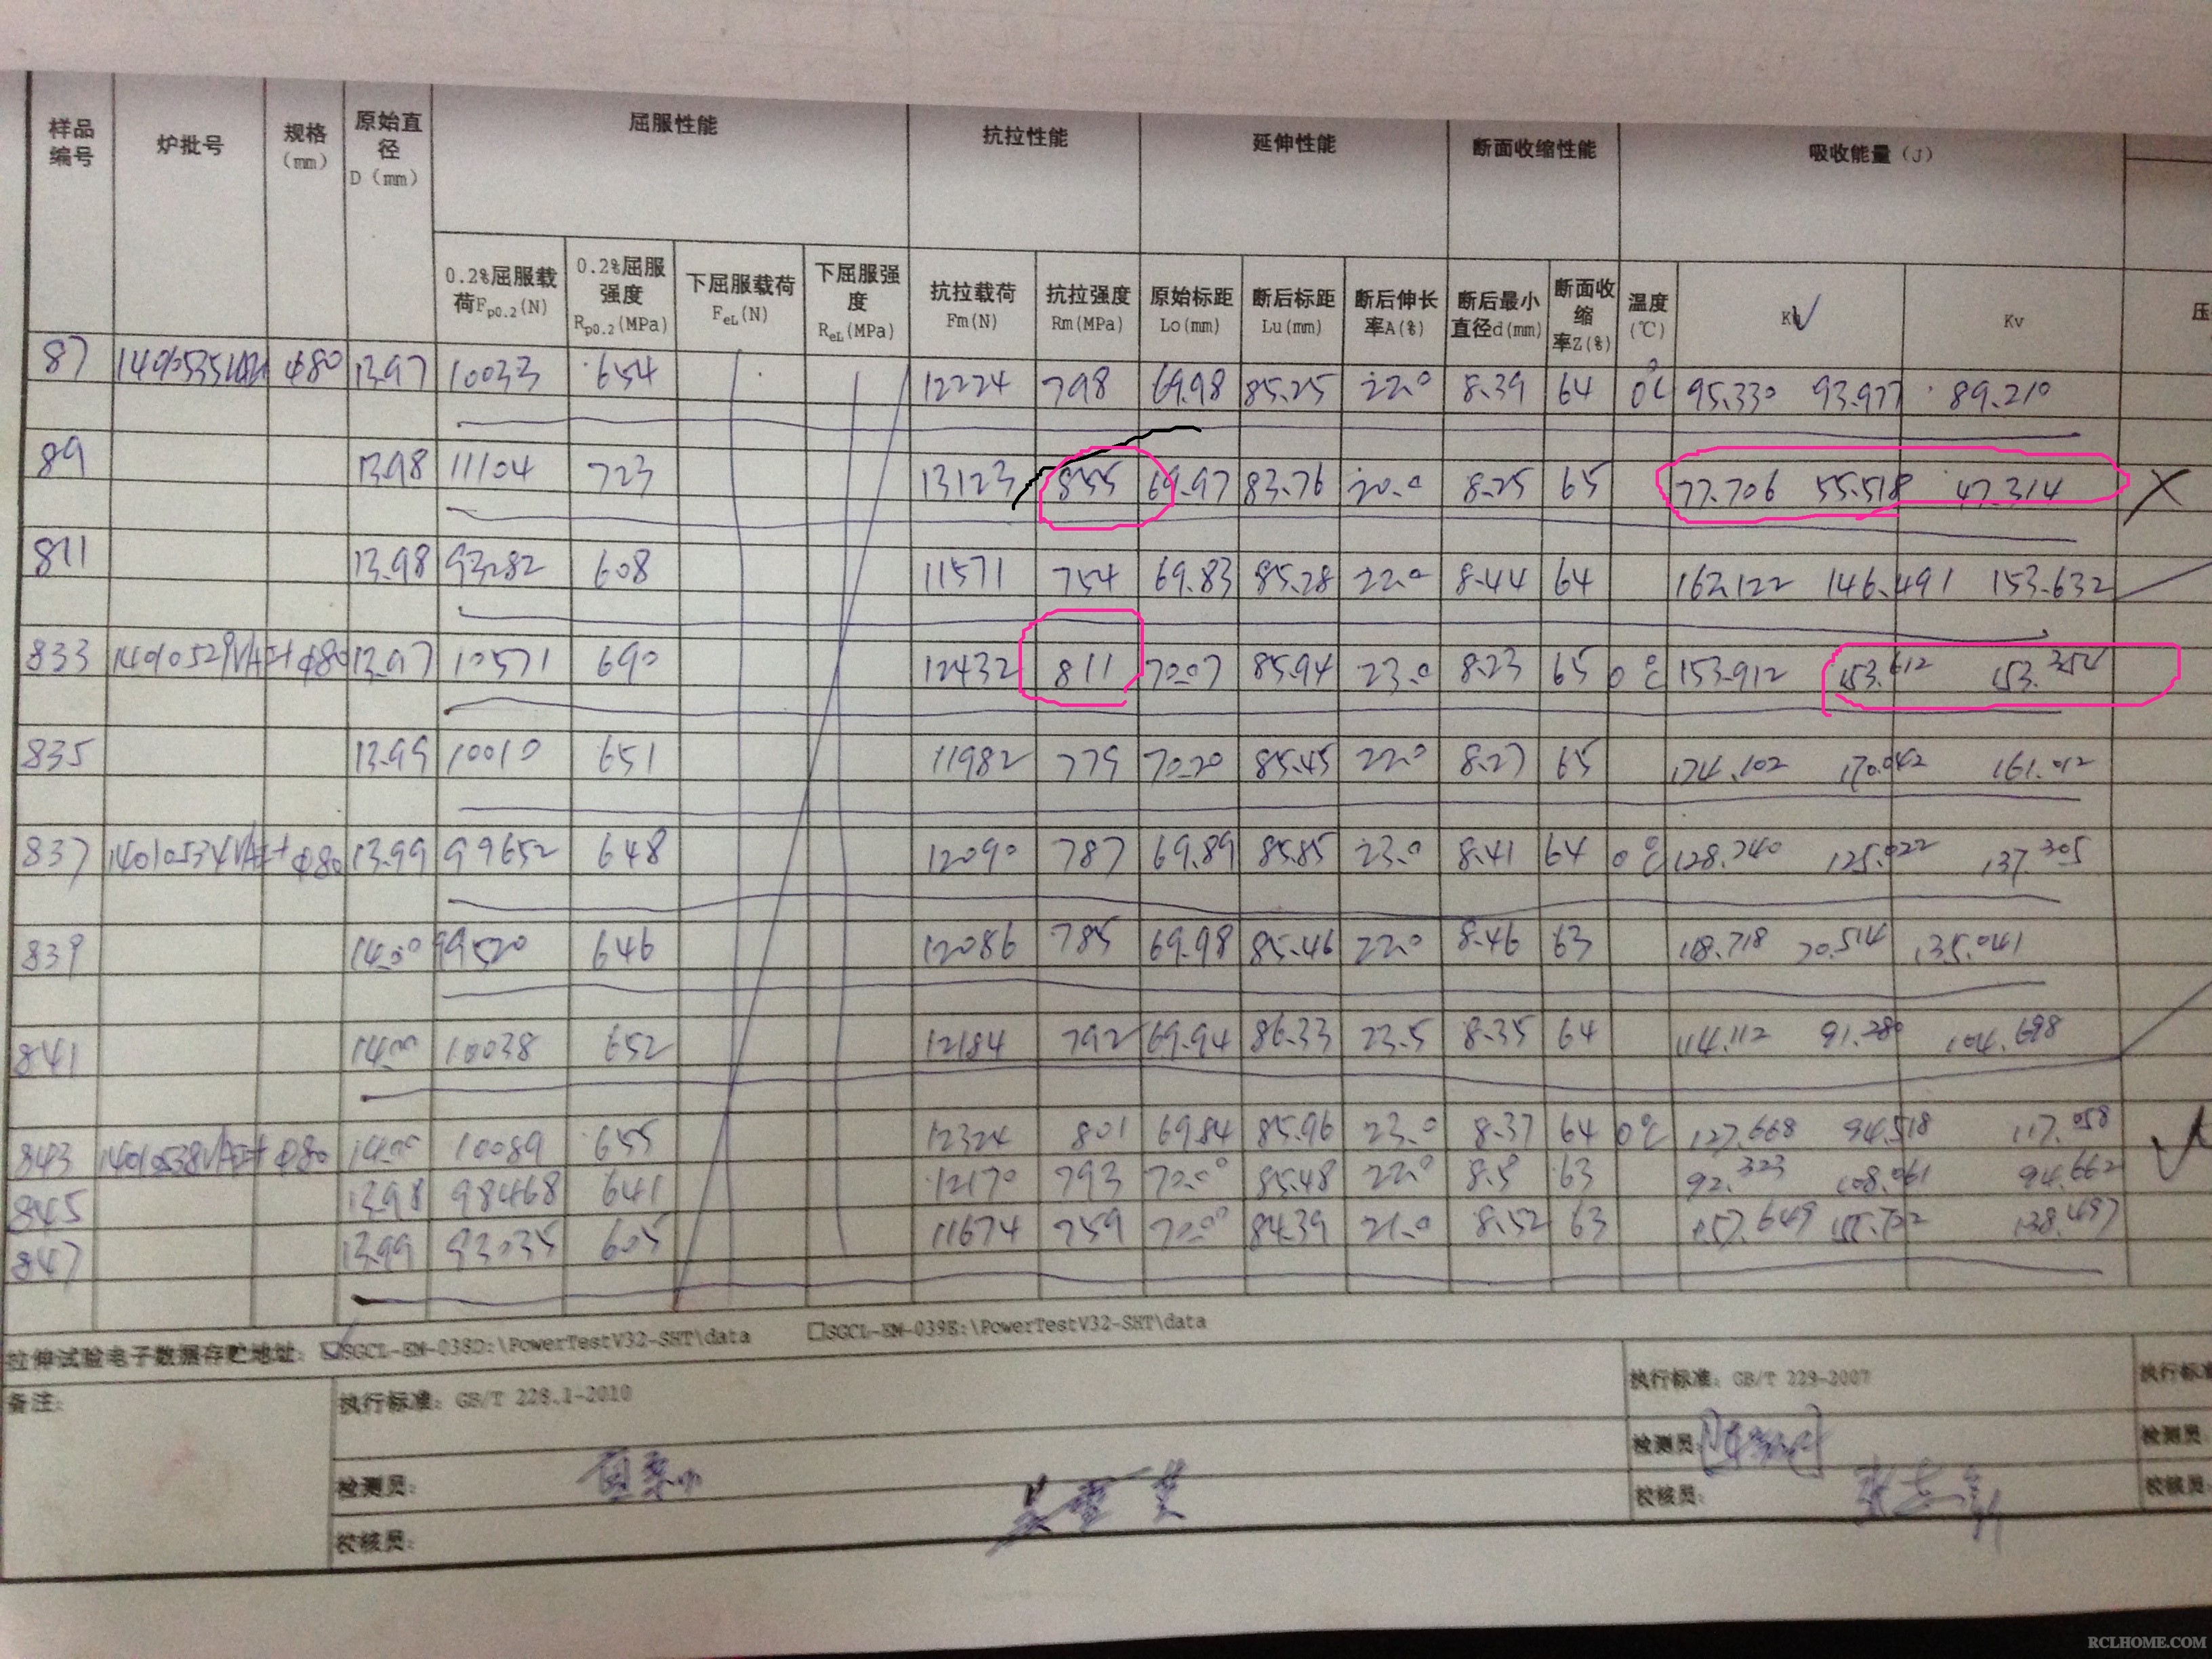 样品编号 炉批号 规格(mm) 原始直径D(mm) 屈服性能 抗拉性能 延伸性能 断面收缩性能 吸收能量(J)
0.2%屈服载荷Fp0.2(N) 0.2%屈服强度Rp0.2(MPa) 下屈服载荷FeL(N) 下屈服强度ReL(MPa) 抗拉载荷Fm(N) 抗拉强度Rm(MPa) 原始标距Lo(mm) 断后标距Lu(mm) 断后伸长率A(%) 断后最小直径d(mm) 断面收缩率Z(%) 温度(℃) Kv 压
87 φ80 13.97 10033 654 12224 798 69.98 85.25 22.0 8.39 64 0℃ 95.330 93.977 89.210
89 13.98 11104 723 13123 855 69.97 83.76 20.0 8.25 65 77.706 55.518 47.314 X
811 13.98 93282 608 11571 754 69.83 85.28 22.0 8.44 64 162.122 146.491 153.632
833 φ80 13.97 10571 690 12432 811 70.07 85.94 23.0 8.23 65 0℃ 153.912 153.612 153.354
835 13.99 10010 651 11982 779 70.20 85.45 22.0 8.27 65 174.102 170.042 161.012
837 φ80 13.99 99652 648 12090 787 69.89 85.85 23.0 8.41 64 0℃ 128.740 125.022 137.305
839 14.00 99520 646 12086 785 69.98 85.46 22.0 8.46 63 118.718 135.041
841 14.00 10038 652 12184 792 69.94 86.33 23.5 8.35 64 114.112 91.280 104.698
843 φ80 14.00 10089 655 12324 801 69.84 85.96 23.0 8.37 64 0℃ 127.668 94.518 117.058
845 13.98 98468 641 12170 793 70.00 85.48 22.0 8.5 63 92.323 108.061 94.662
847 13.99 93035 605 11674 759 70.00 84.39 21.0 8.52 63 157.649 138.497
拉伸试验电子数据存贮地址: ☑SGCL-EM-038D:\PowerTestV32-SHT\data □SGCL-EM-039E:\PowerTestV32-SHT\data
备注: 执行标准: GB/T 228.1-2010 执行标准: GB/T 229-2007 执行标准
检测员: 检测员: 检测员:
校核员: 校核员: 校核员:
RCLHOME.COM